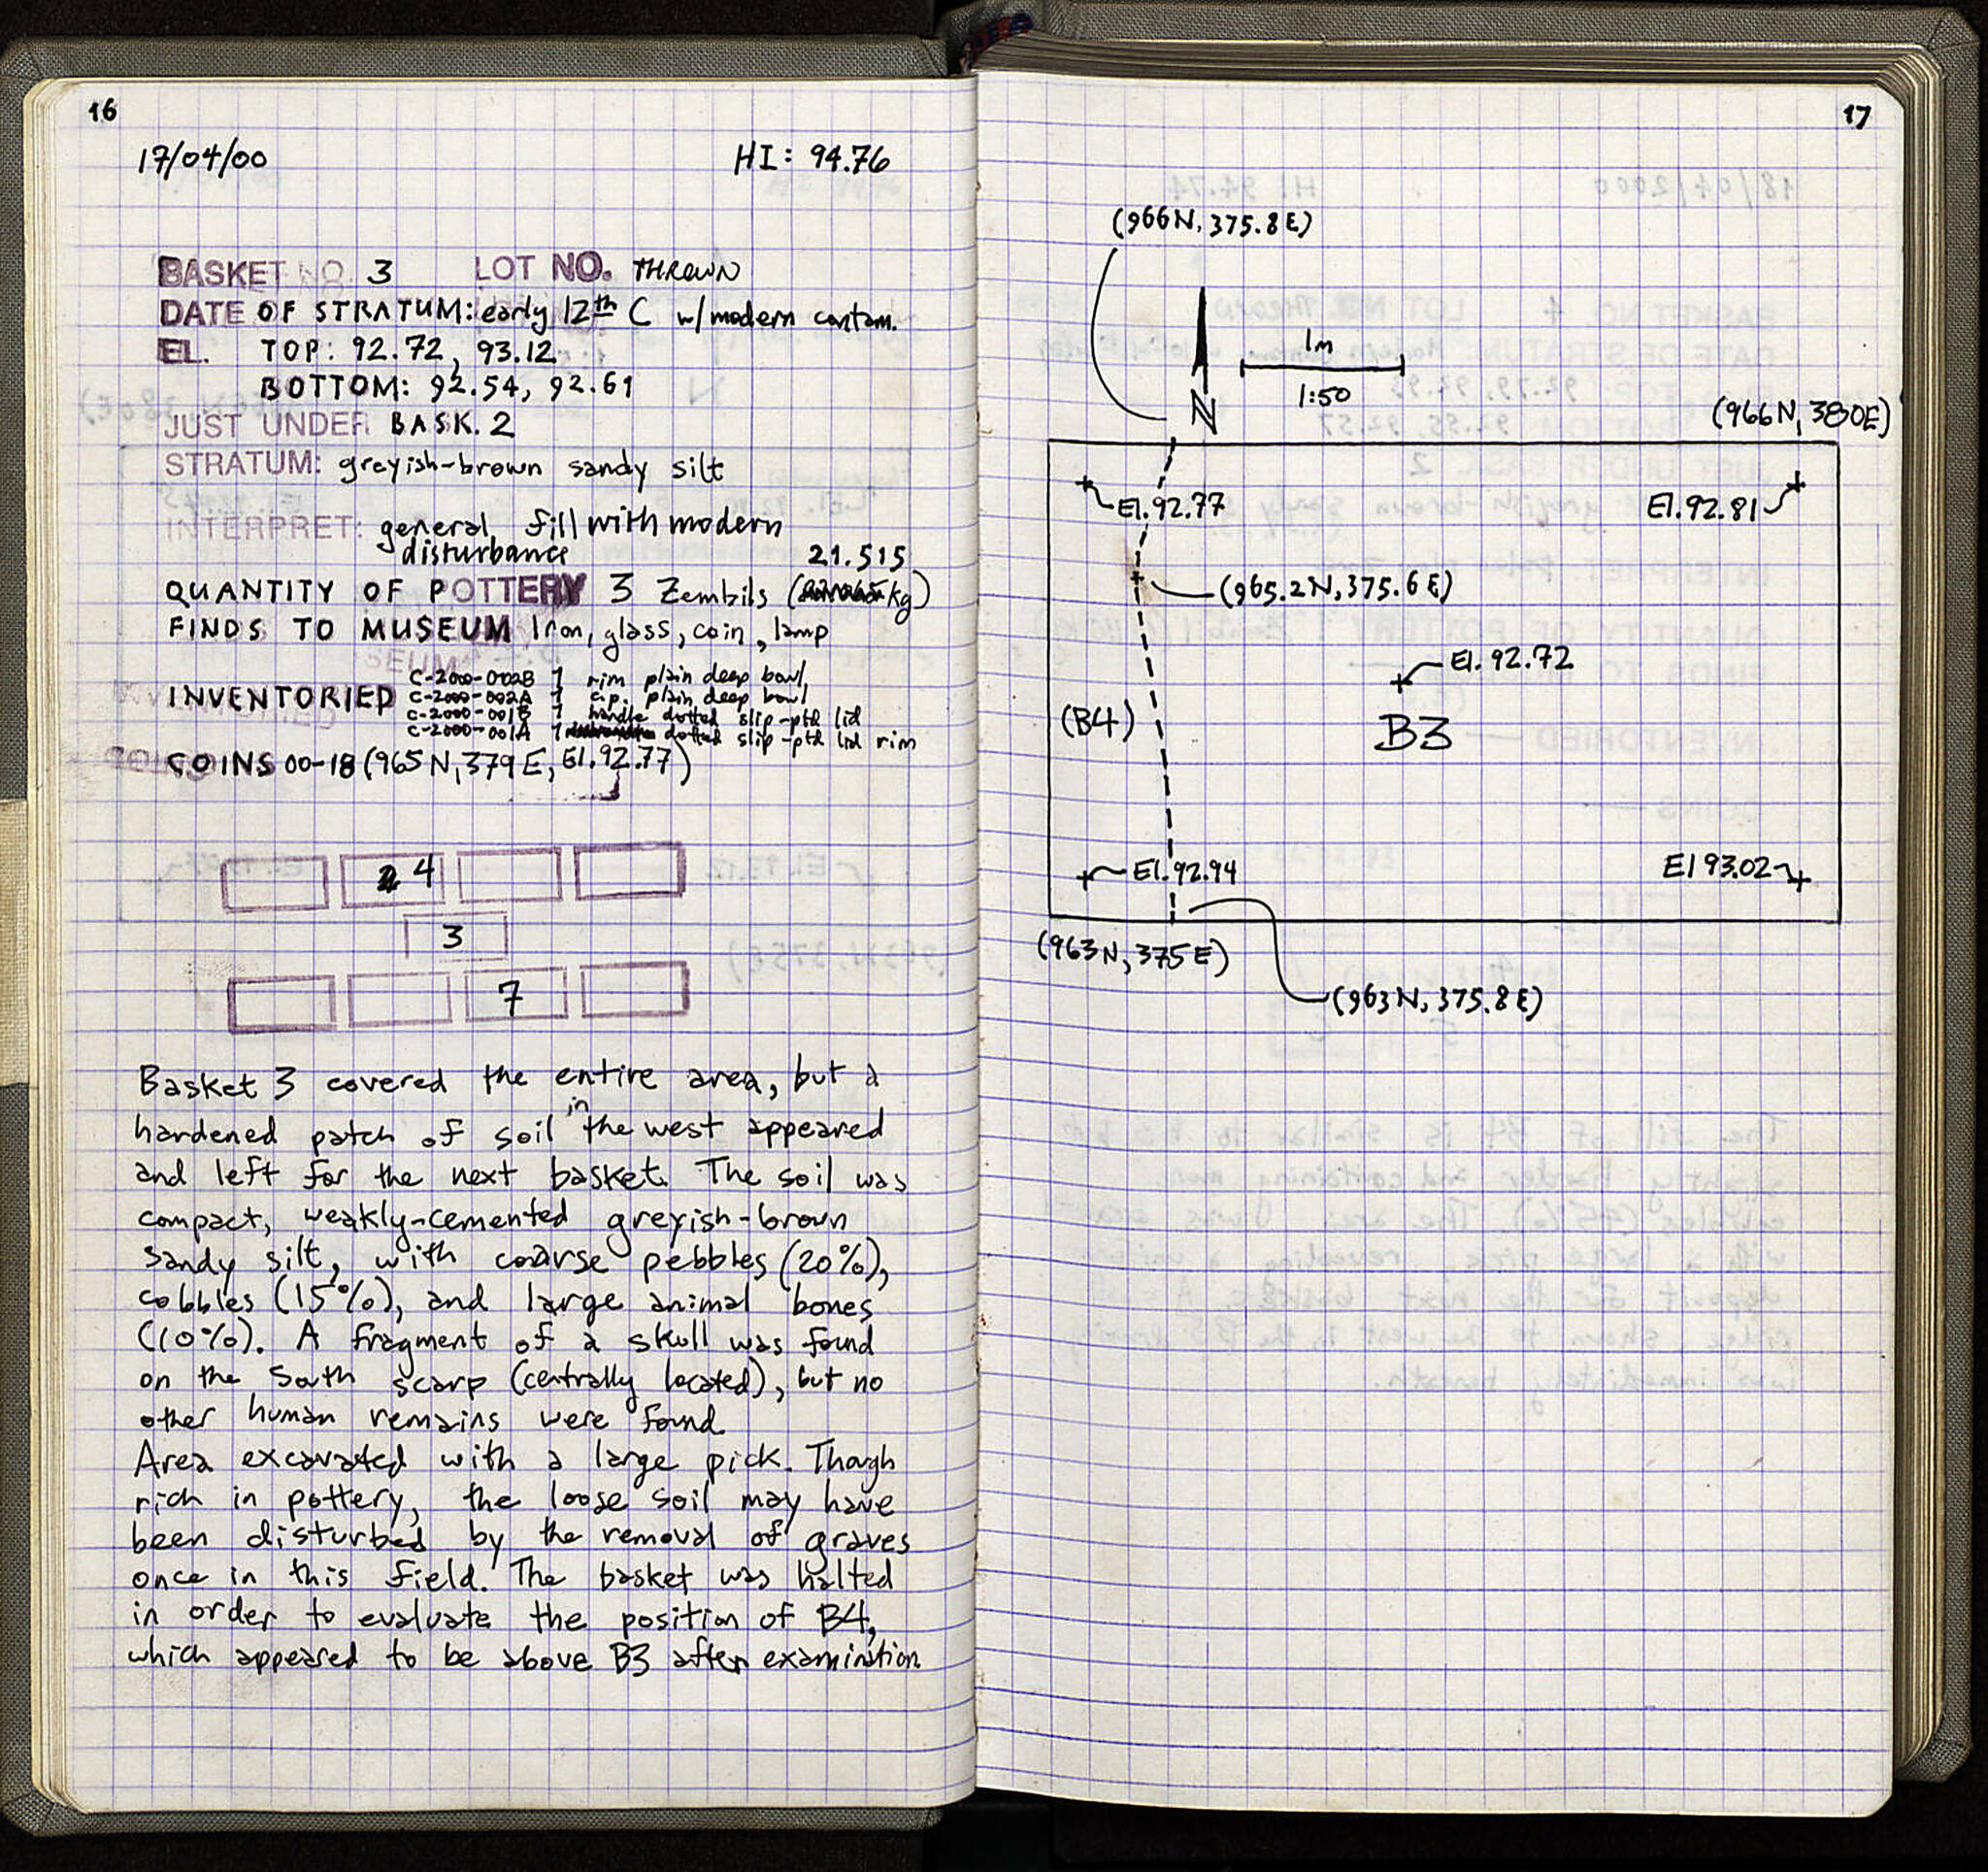 16
17/04/00 HI: 94.76
BASKET NO. 3 LOT NO. THROWN
DATE OF STRATUM: early 12th C w/modern contam.
EL. TOP: 92.72, 93.12
BOTTOM: 92.54, 92.61
JUST UNDER BASK. 2
STRATUM: greyish-brown sandy silt
INTERPRET: general fill with modern
disturbance 21.515
QUANTITY OF POTTERY 3 Zembils (kg)
FINDS TO MUSEUM Iron, glass, coin, lamp
C-2000-002B 1 rim plain deep bowl
INVENTORIED C-2000-002A 1 c.p. plain deep bowl
C-2000-001B 1 handle dotted slip-ptd lid
C-2000-001A 1 dotted slip-ptd lid rim
COINS 00-18 (965N, 379E, El. 92.77)
4
3
7
Basket 3 covered the entire area, but a
hardened patch of soil in the west appeared
and left for the next basket. The soil was
compact, weakly-cemented greyish-brown
sandy silt, with coarse pebbles (20%),
cobbles (15%), and large animal bones
(10%). A fragment of a skull was found
on the South scarp (centrally located), but no
other human remains were found.
Area excavated with a large pick. Though
rich in pottery, the loose soil may have
been disturbed by the removal of graves
once in this field. The basket was halted
in order to evaluate the position of B4,
which appeared to be above B3 after examination
17
(966N, 375.8E)
1m
1:50
N
(966N, 380E)
El. 92.77
El. 92.81
(965.2N, 375.6E)
El. 92.72
(B4)
B3
El. 92.94
El 93.02
(963N, 375E)
(963N, 375.8E)